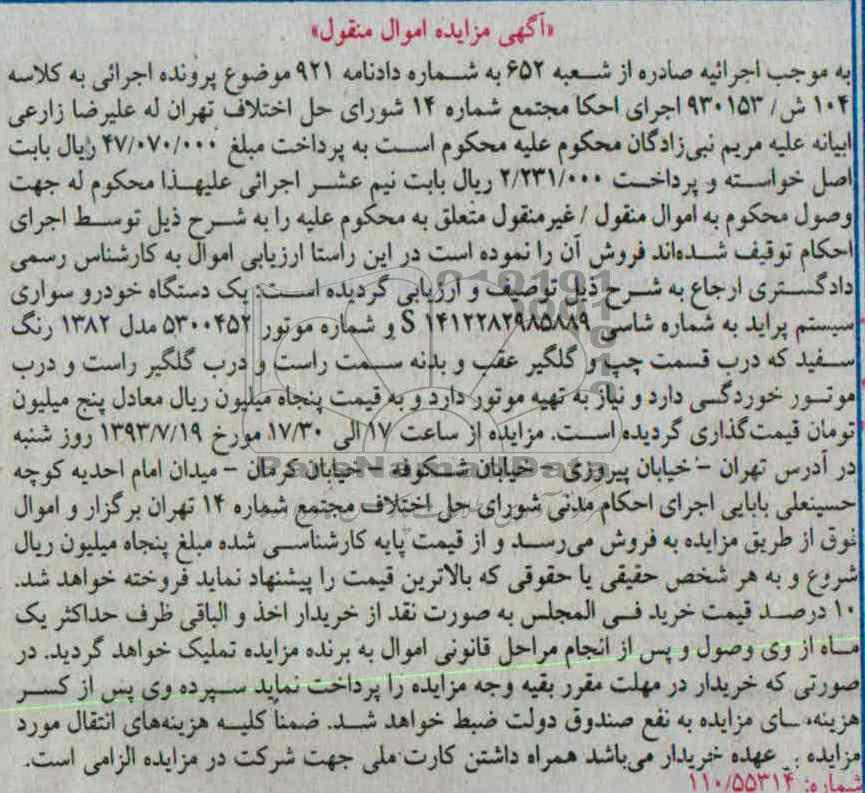 «آگهی مزایده اموال منقول»
به موجب اجرائیه صادره از شعبه ۶۵۲ به شماره دادنامه ۹۲۱ موضوع پرونده اجرائی به کلاسه
۱۰۴ ش/ ۹۳۰۱۵۳ اجرای احکا مجتمع شماره ۱۴ شورای حل اختلاف تهران له علیرضا زارعی
ابیانه علیه مریم نبی‌زادگان محکوم علیه محکوم است به پرداخت مبلغ ۴۷/۰۷۰/۰۰۰ ریال بابت
اصل خواسته و پرداخت ۲/۲۳۱/۰۰۰ ریال بابت نیم عشر اجرائی علیهذا محکوم له جهت
وصول محکوم به اموال منقول / غیرمنقول متعلق به محکوم علیه را به شرح ذیل توسط اجرای
احکام توقیف شده‌اند فروش آن را نموده است در این راستا ارزیابی اموال به کارشناس رسمی
دادگستری ارجاع به شرح ذیل توصیف و ارزیابی گردیده است: یک دستگاه خودرو سواری
سیستم پراید به شماره شاسی S ۱۴۱۲۲۸۲۹۸۵۸۸۹ و شماره موتور ۵۳۰۰۴۵۲ مدل ۱۳۸۲ رنگ
سفید که درب قسمت چپ و گلگیر عقب و بدنه سمت راست و درب گلگیر راست و درب
موتور خوردگی دارد و نیاز به تهیه موتور دارد و به قیمت پنجاه میلیون ریال معادل پنج میلیون
تومان قیمت‌گذاری گردیده است. مزایده از ساعت ۱۷ الی ۱۷/۳۰ مورخ ۱۳۹۳/۷/۱۹ روز شنبه
در آدرس تهران - خیابان پیروزی - خیابان شکوفه - خیابان کرمان - میدان امام احدیه کوچه
حسینعلی بابایی اجرای احکام مدنی شورای حل اختلاف مجتمع شماره ۱۴ تهران برگزار و اموال
فوق از طریق مزایده به فروش می‌رسد و از قیمت پایه کارشناسی شده مبلغ پنجاه میلیون ریال
شروع و به هر شخص حقیقی یا حقوقی که بالاترین قیمت را پیشنهاد نماید فروخته خواهد شد.
۱۰ درصد قیمت خرید فی المجلس به صورت نقد از خریدار اخذ و الباقی ظرف حداکثر یک
ماه از وی وصول و پس از انجام مراحل قانونی اموال به برنده مزایده تملیک خواهد گردید. در
صورتی که خریدار در مهلت مقرر بقیه وجه مزایده را پرداخت نماید سپرده وی پس از کسر
هزینه‌های مزایده به نفع صندوق دولت ضبط خواهد شد. ضمناً کلیه هزینه‌های انتقال مورد
مزایده عهده خریدار می‌باشد همراه داشتن کارت ملی جهت شرکت در مزایده الزامی است.
شماره: ۱۱۰/۵۵۳۱۴